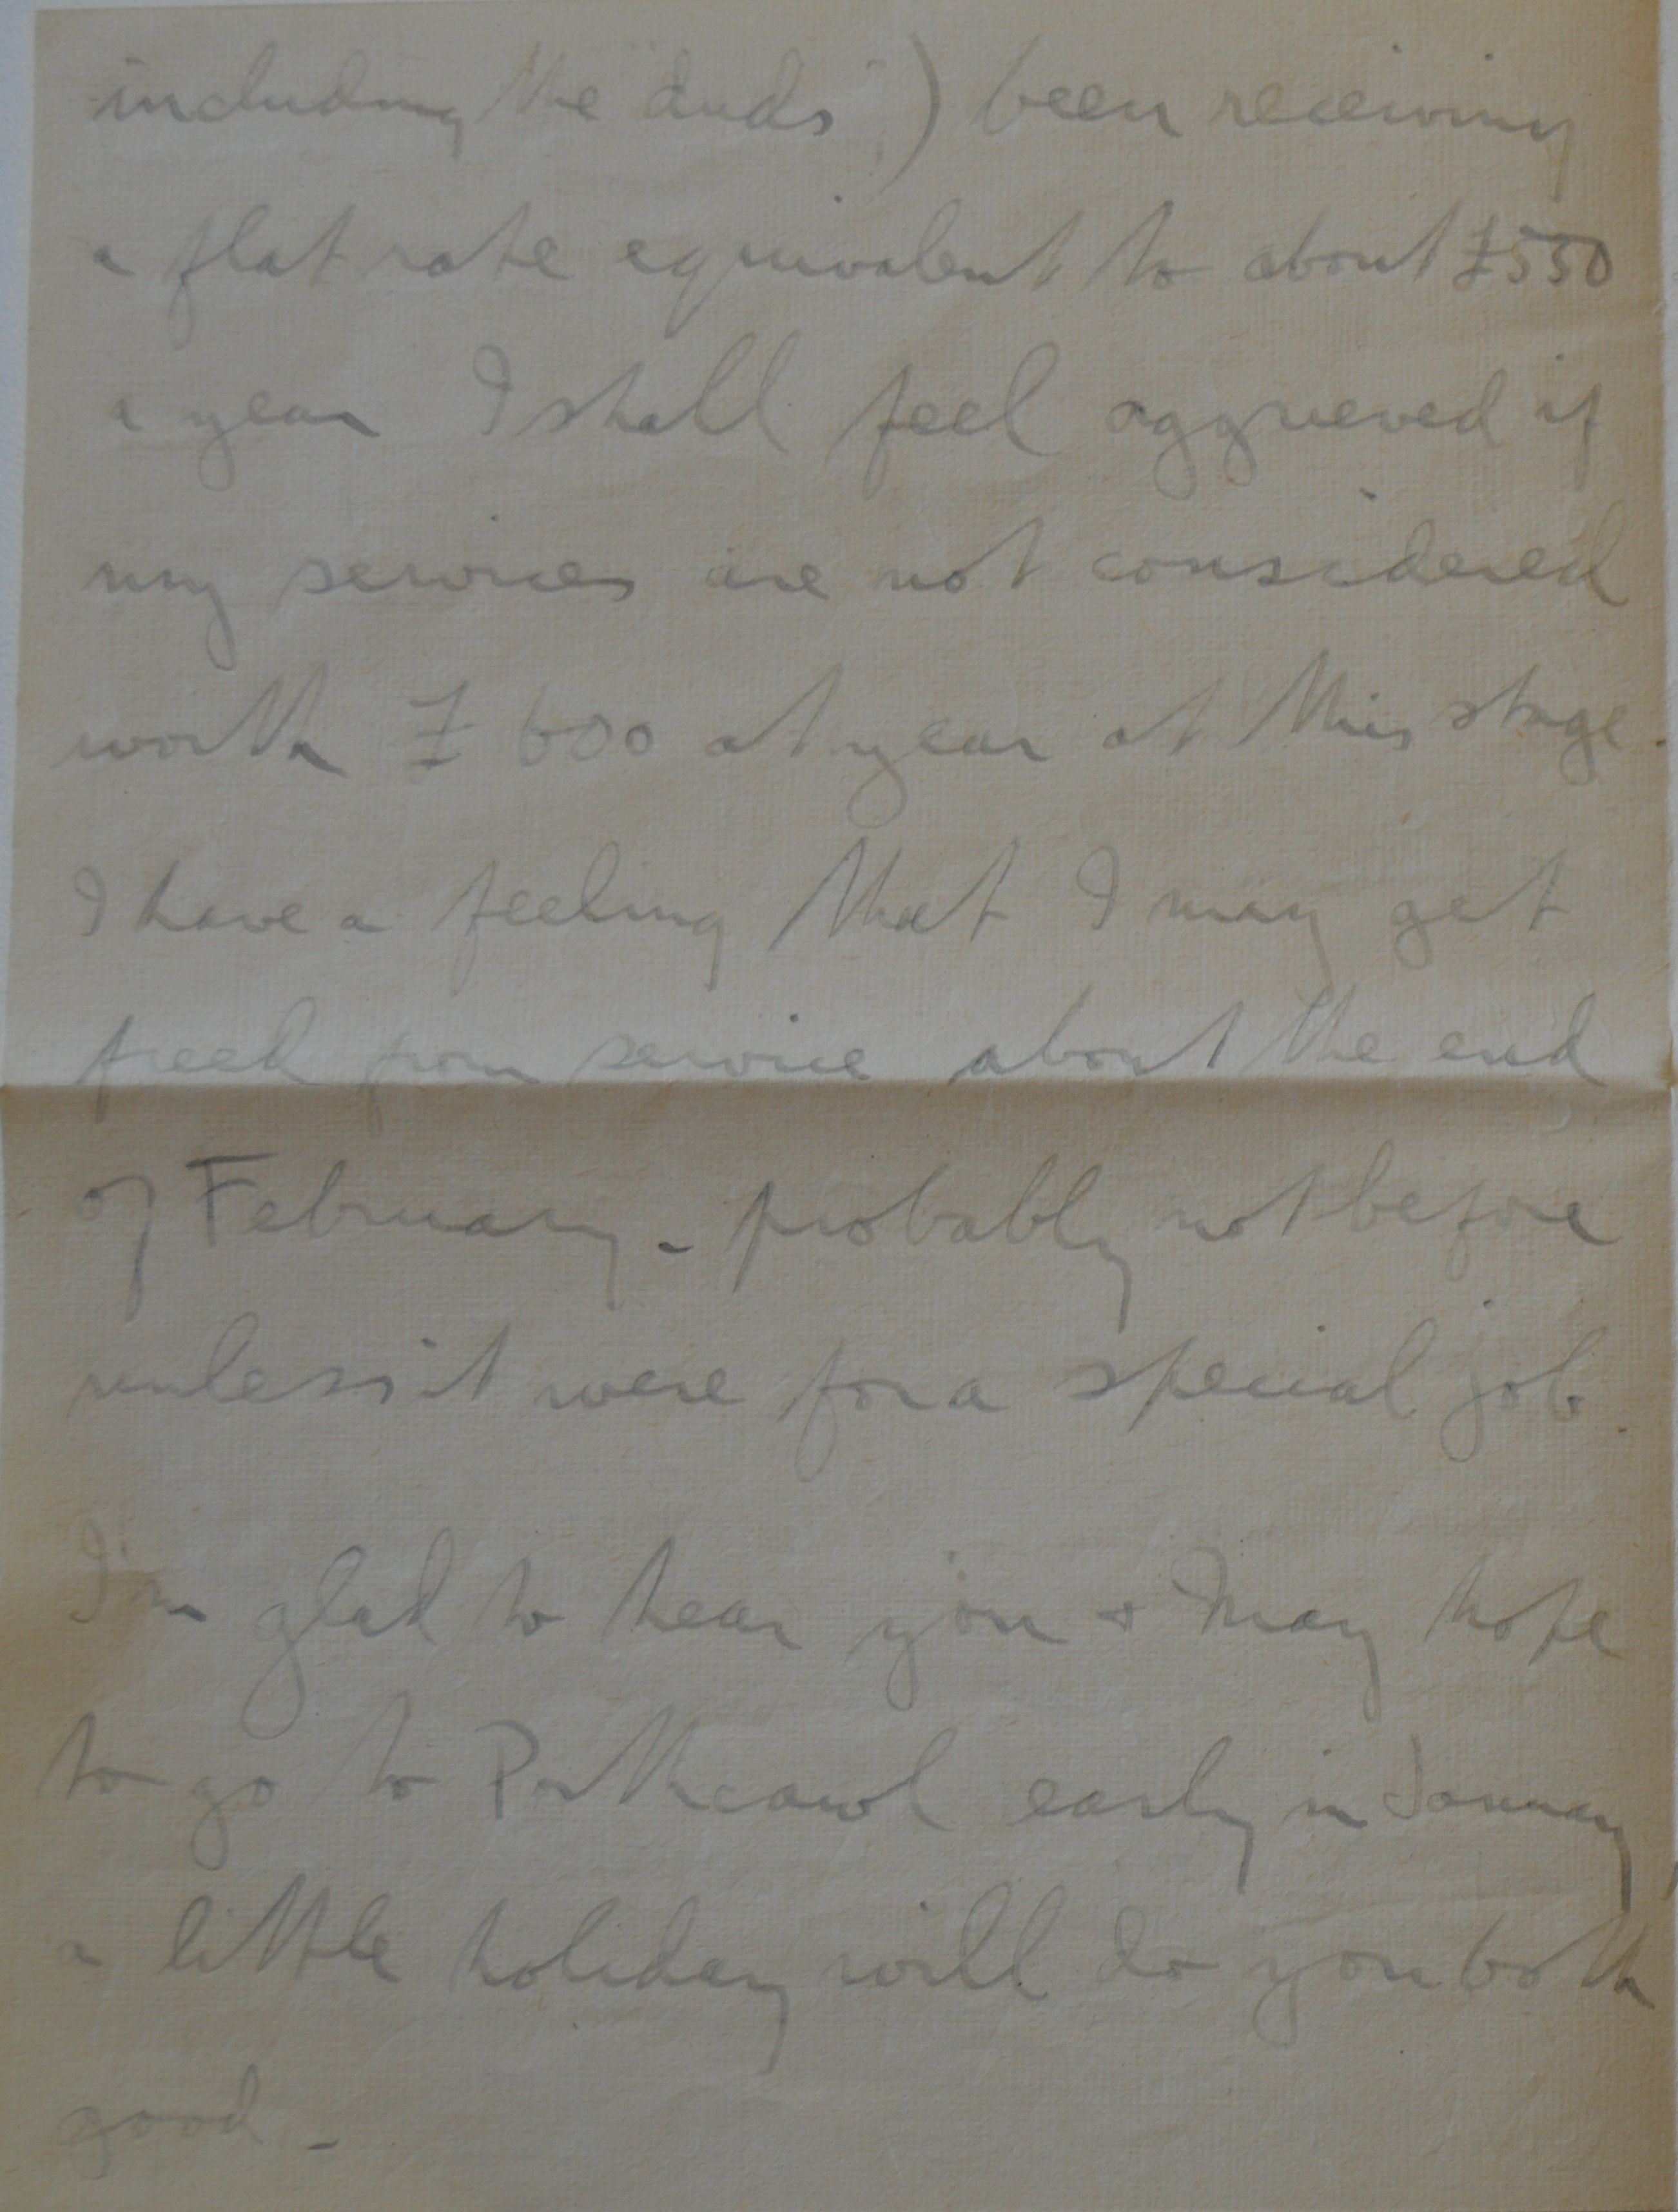 including the "duds") been receiving
a flat rate equivalent to about £550
a year I shall feel aggrieved if
my services are not considered
worth £600 at year at this stage.
I have a feeling that I may get
freed from service about the end
of February - probably not before
unless it were for a special job.
I'm glad to hear you & May hope
to go to Porthcawl early in January,
a little holiday will do you both
good -